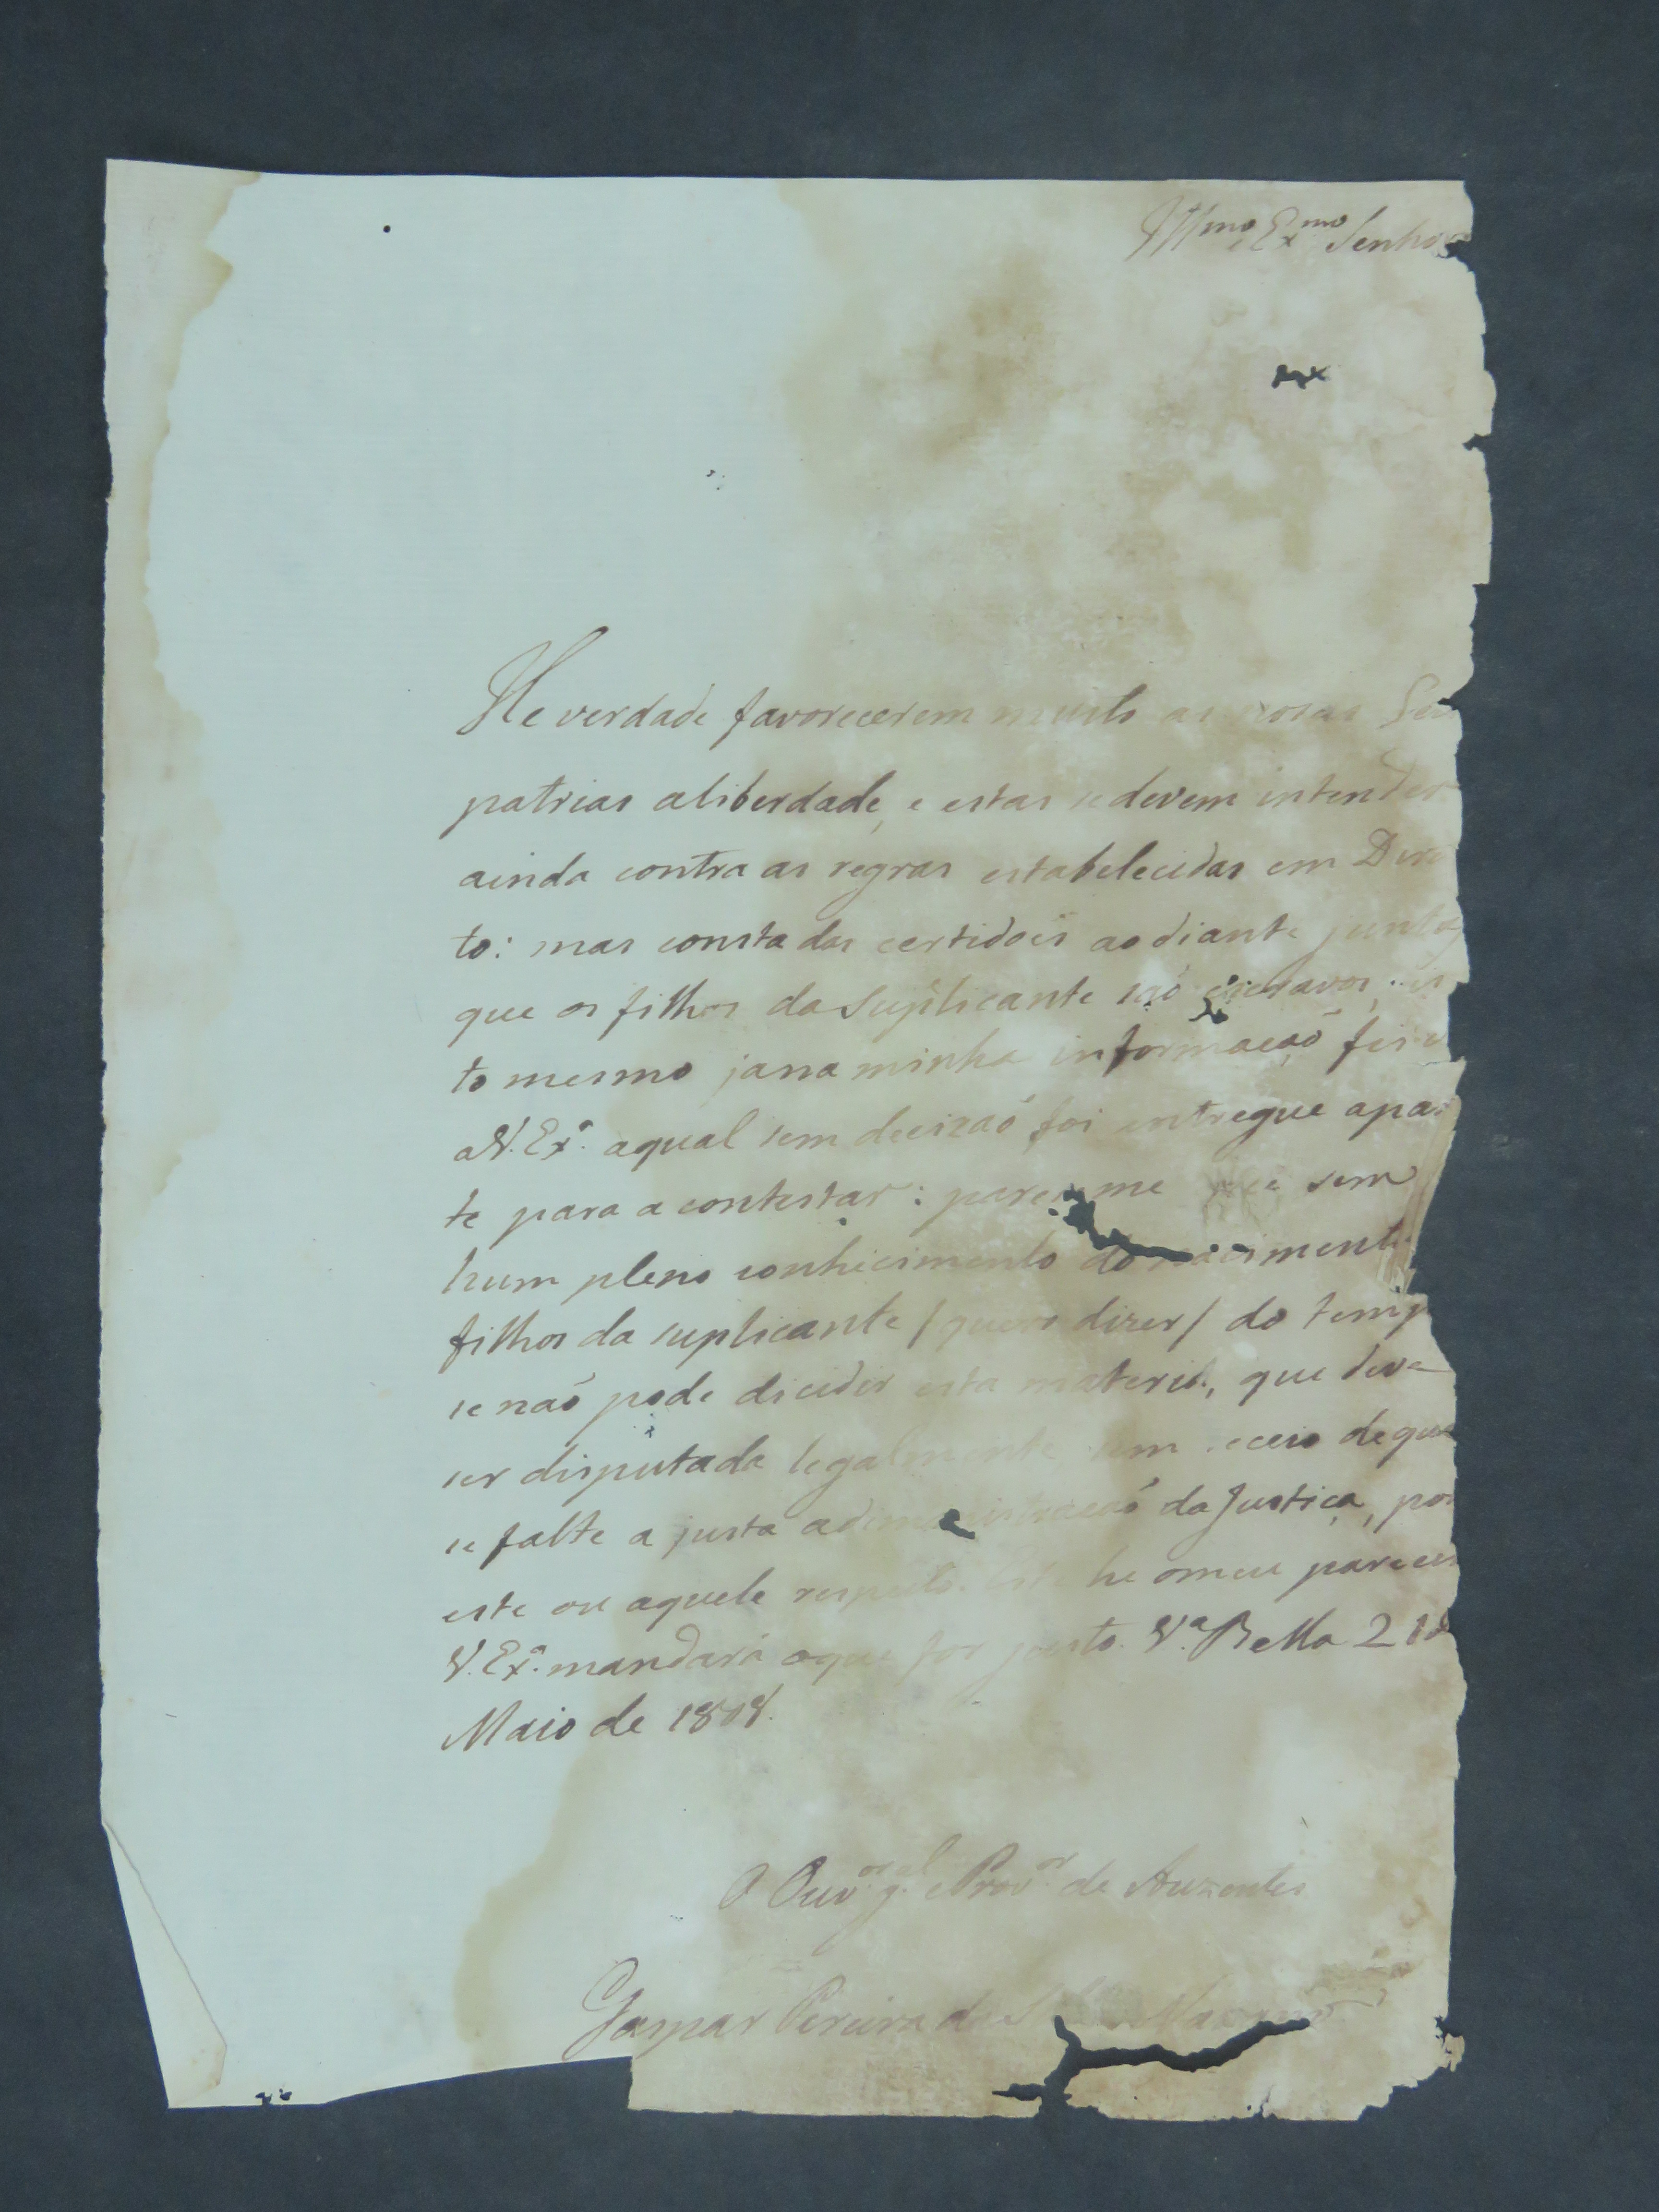 Ill.mo e Ex.mo Senhor
He verdade favorecerem muito as nosas
patrias aliberdade, e estas se devem intender
ainda contra as regras estabelecidas em Dire
to: mas consta das certidoẽs ao diante juntas
que os filhos da Suplicante saõ escravos,
to mesmo ja na minha informaçaõ fis
a V. Ex.ª aqual sem decizaõ foi entregue apar
te para a contestar: parece me que sem
hum pleno conhecimento do nacimento
filhos da suplicante / quero dizer / do temp
se naõ pode dicidir esta materia, que deve
ser disputada legalmente sem receio de que
se falte a justa adiministracaõ da Justiça, por
este ou aquele respeito. Este he omeu parecer
V. Ex.ª mandará oque for justo. V.ª Bella 21 d
Maio de 1808.
O Ouv.or g.el e Prov.or de Auzentes
Gaspar Pereira da